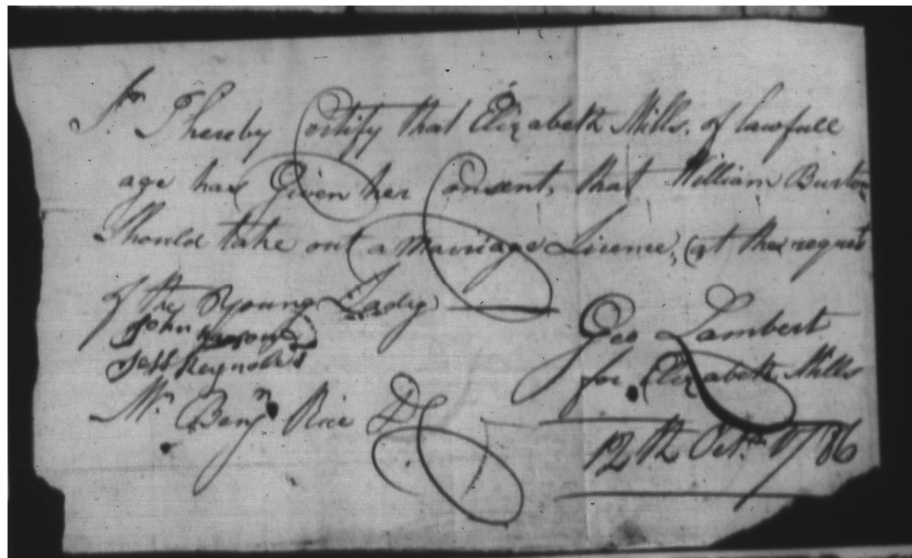 Sr. I hereby Certify that Elizabeth Mills, of lawfull
age has Given her Consent, that William Burton
Should take out a Marriage Licence, (at the request
of the Young Lady
John
Jess Reynolds
Geo Lambert
for Elizabeth Mills
Mr. Benj. Rice DC
12th Octr. 1786